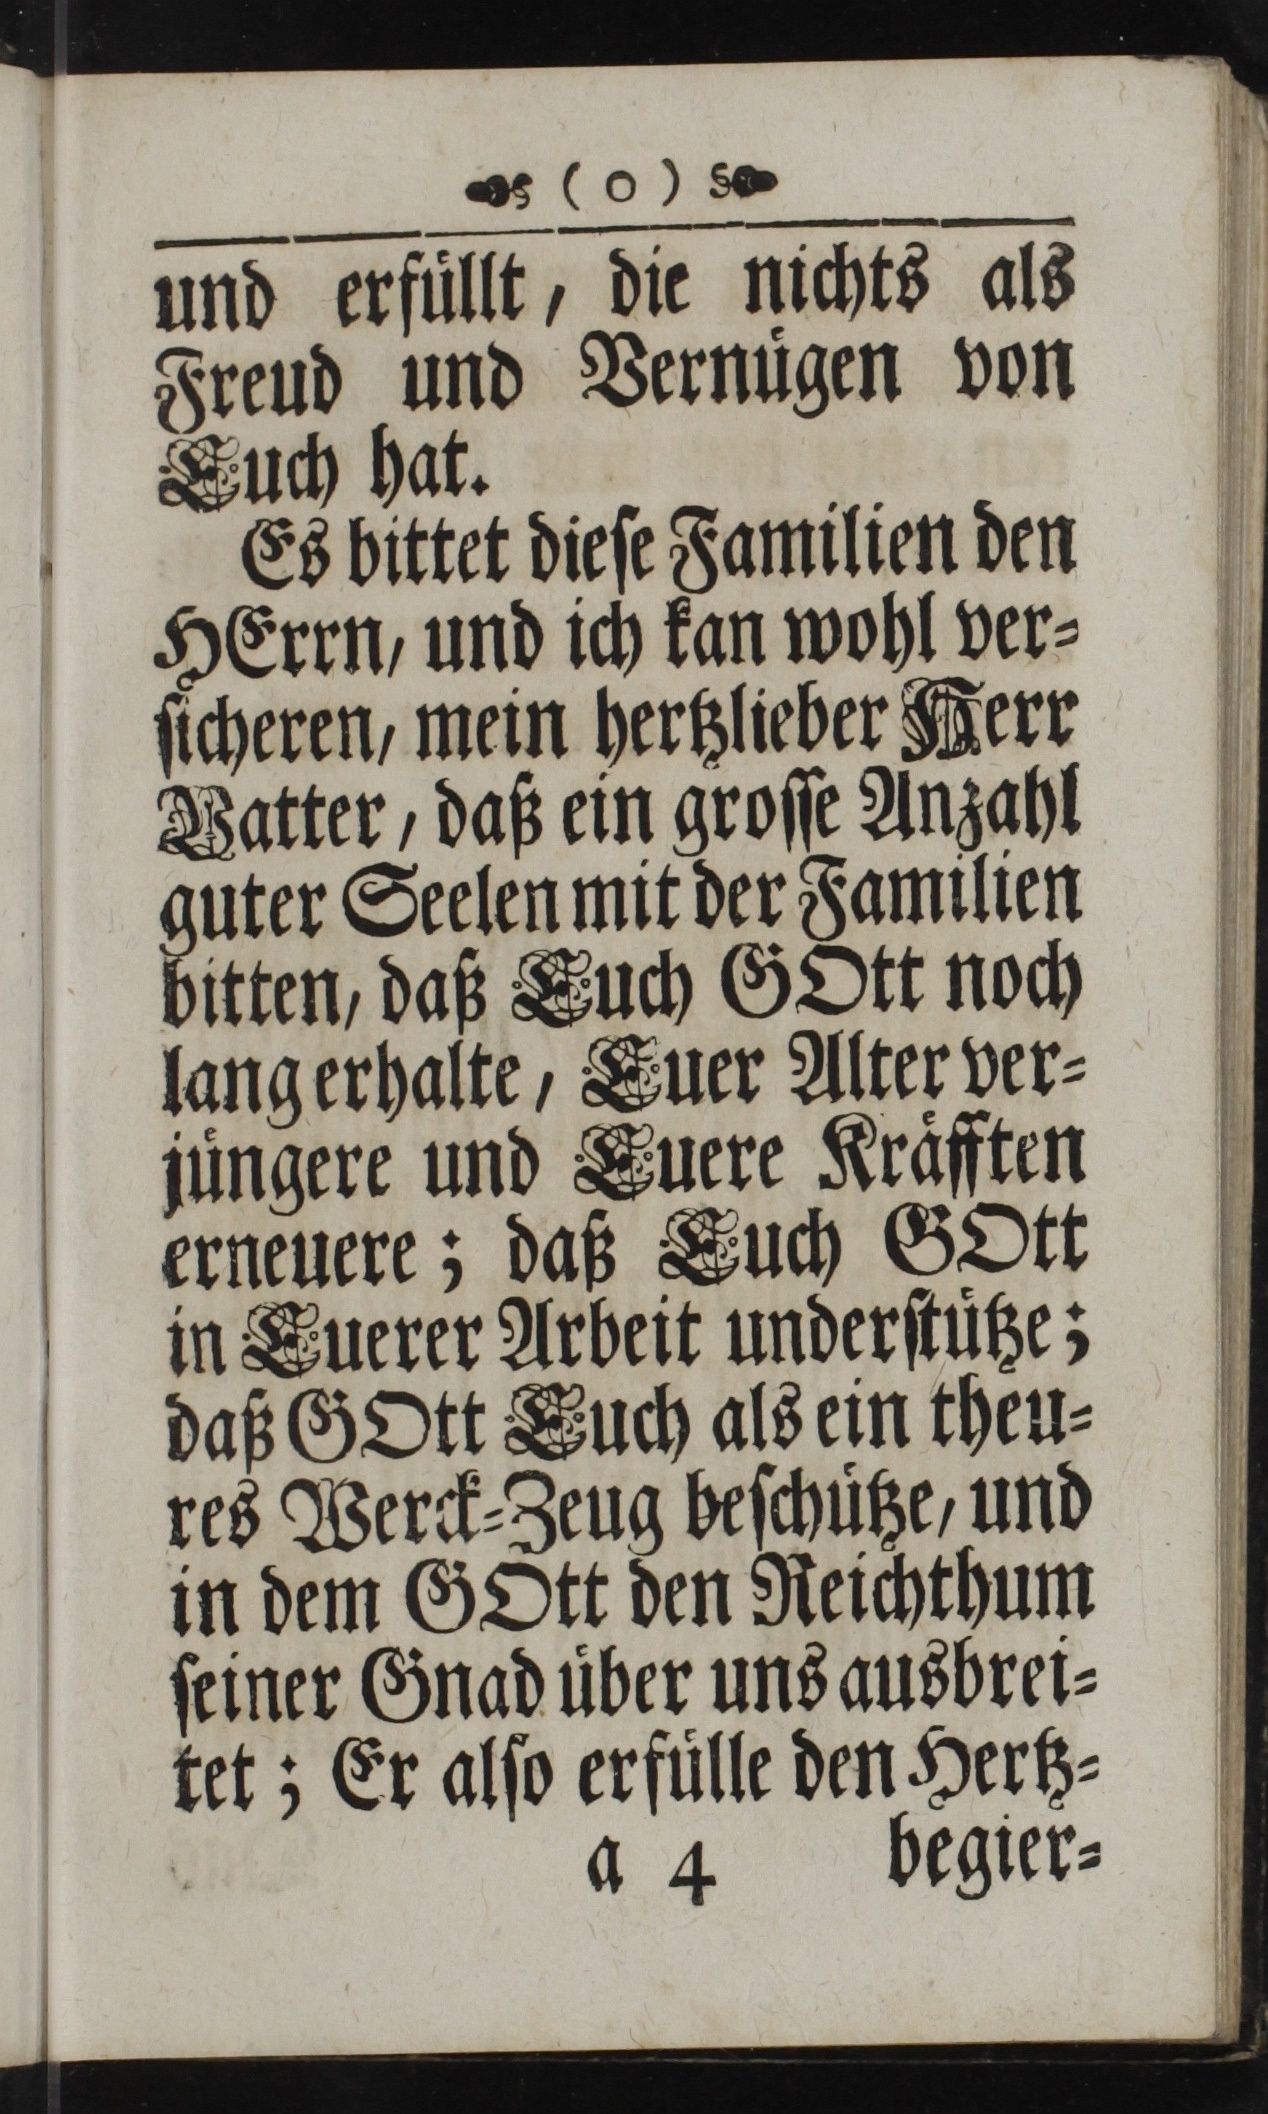 ( o )
und erfüllt, die nichts als
Freud und Vernügen von
Euch hat.
Es bittet diese Familien den
HErrn, und ich kan wohl ver-
sicheren, mein hertzlieber Herr
Vatter, daß ein grosse Anzahl
guter Seelen mit der Familien
bitten, daß Euch GOtt noch
lang erhalte, Euer Alter ver-
jüngere und Euere Kräfften
erneuere; daß Euch GOtt
in Euerer Arbeit understütze;
daß GOtt Euch als ein theu-
res Werck-Zeug beschütze, und
in dem GOtt den Reichthum
seiner Gnad über uns ausbrei-
tet; Er also erfülle den Hertz-
a 4 begier-